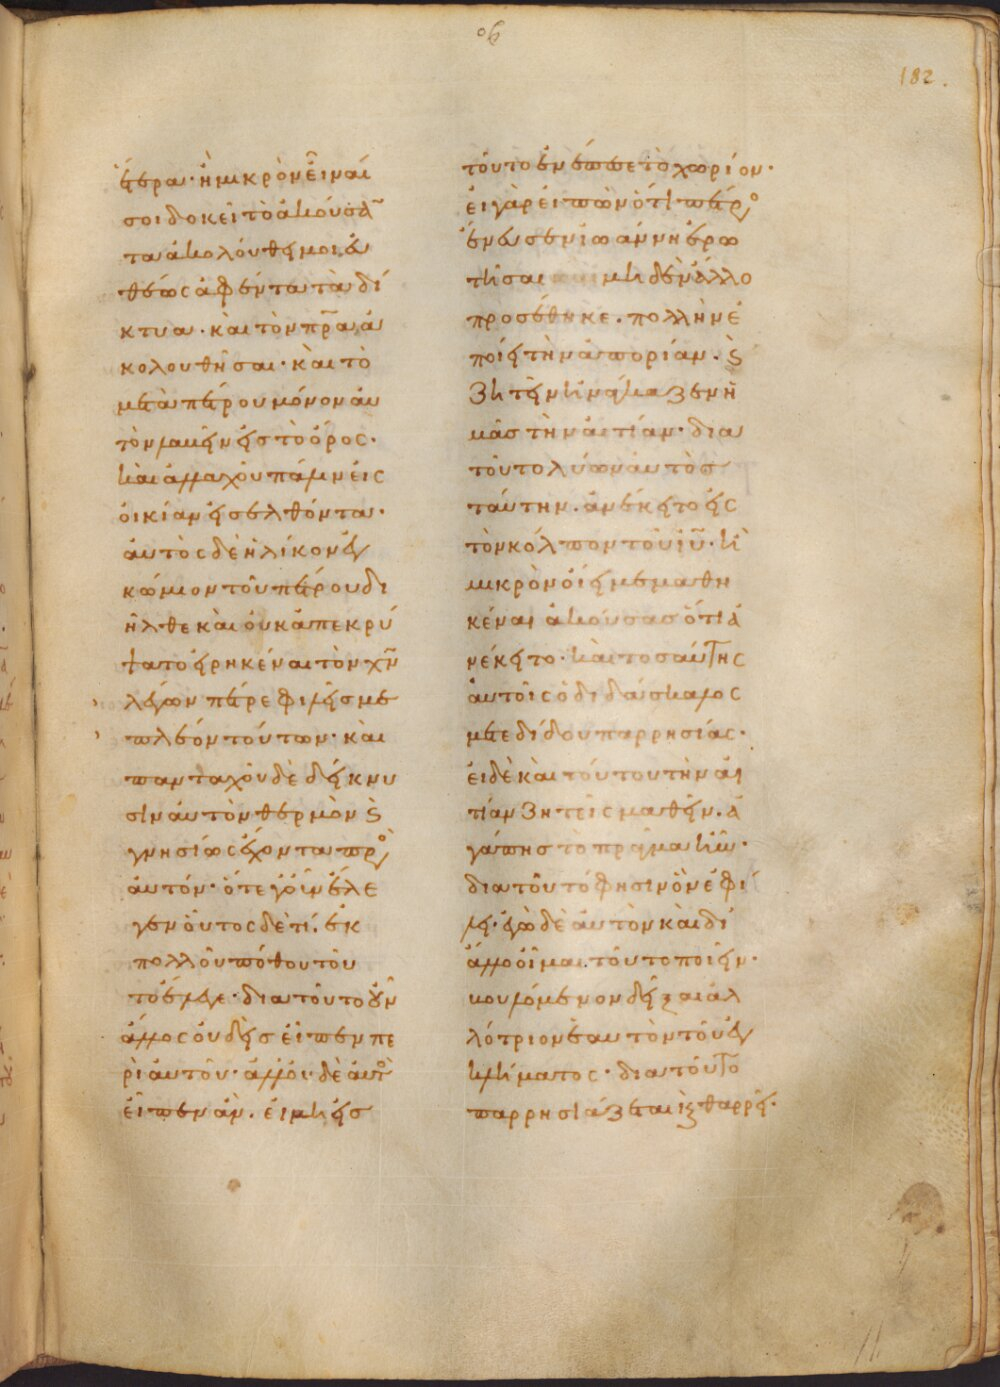 οβ
182.
ἕτερα· ἢ μικρὸν εἶναί
σοι δοκεῖ τὸ ἀκούσαν
τα ἀκολούθει μοι, εὐ
θέως ἀφέντα τὰ δί
κτυα· καὶ τὸν πρα ἀ
κολουθῆσαι· καὶ τὸ
μετὰ πέτρου μόνον αὐ
τὸν λαμεῖν εἰς τὸ ὄρος·
καὶ ἀλλαχοῦ πάλιν εἰς
οἰκίαν εἰσελθόντα·
αὐτὸς δὲ ἡλίκον ἐγ
κώμιον τοῦ πέτρου δι
ῆλθε καὶ οὐκ ἀπεκρύ
ψατο εἰρηκέναι τὸν χν
λέγων πέτρε φιλεῖς με
πλέον τούτων· καὶ
πανταχοῦ δὲ δείκνυ
σιν αὐτὸν θερμὸν καὶ
γνησίως ἔχοντα πρὸς
αὐτόν· ὅτε γοῦν ἔλε
γεν οὗτος δὲ τί. ἐκ
πολλοῦ πόθου τοῦ
το ἔλεγε· διατοῦτο οὖν
ἄλλος οὐδεὶς εἶπεν πε
ρὶ αὐτοῦ· ἀλλ' οὐδὲ αὐτὸς
εἶπεν ἄν. εἰ μὴ εἰς
τοῦτο ἐνέπεσε τὸ χωρίον·
εἰ γὰρ εἰπὼν ὅτι πέτρος
ἔνευσεν ἰωάννη ἐρω
τῆσαι μηδὲν ἄλλο
προσέθηκε. πολλὴν ἐ
ποίει τὴν ἀπορίαν. καὶ
ζητεῖν ἠνάγκαζεν ἡ
μᾶς τὴν αἰτίαν· δια
τοῦτο λύων αὐτὸς
ταύτην. ἀνέκειτο εἰς
τὸν κόλπον τοῦ ιυ· καὶ
μικρὸν οἴει μεμαθη
κέναι ἀκούσας ὅτι ἀ
νέκειτο· καὶ τοσαύτης
αὐτοῖς ὁ διδάσκαλος
μετεδίδου παρρησίας·
εἰ δὲ καὶ τούτου τὴν αἰ
τίαν ζητεῖς μαθεῖν. ἀ
γάπης τὸ πρᾶγμα ἦν·
διατοῦτό φησιν ὃν ἐφί
λει· ἐγὼ δὲ αὐτὸν καὶ δι
ἄλλο οἶμαι τοῦτο ποιεῖν·
βουλόμενον δεῖξαι ἀλ
λότριον ἑαυτὸν τοῦ ἐγ
κλήματος· διατοῦτο
παρρησιάζεται καὶ θαρρεῖ·